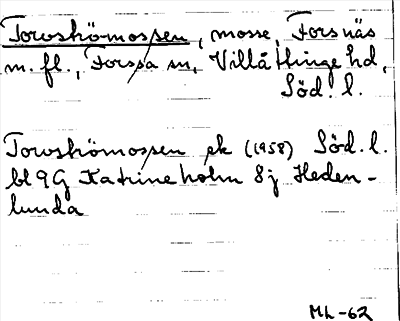 Torvskömossen, mosse, Forsnäs
m. fl., Forssa sn, Villåttinge hd,
Söd. l.
Torvskömossen ek (1958) Söd. l.
bl 9G Katrineholm 8j Heden-
lunda
ML-62